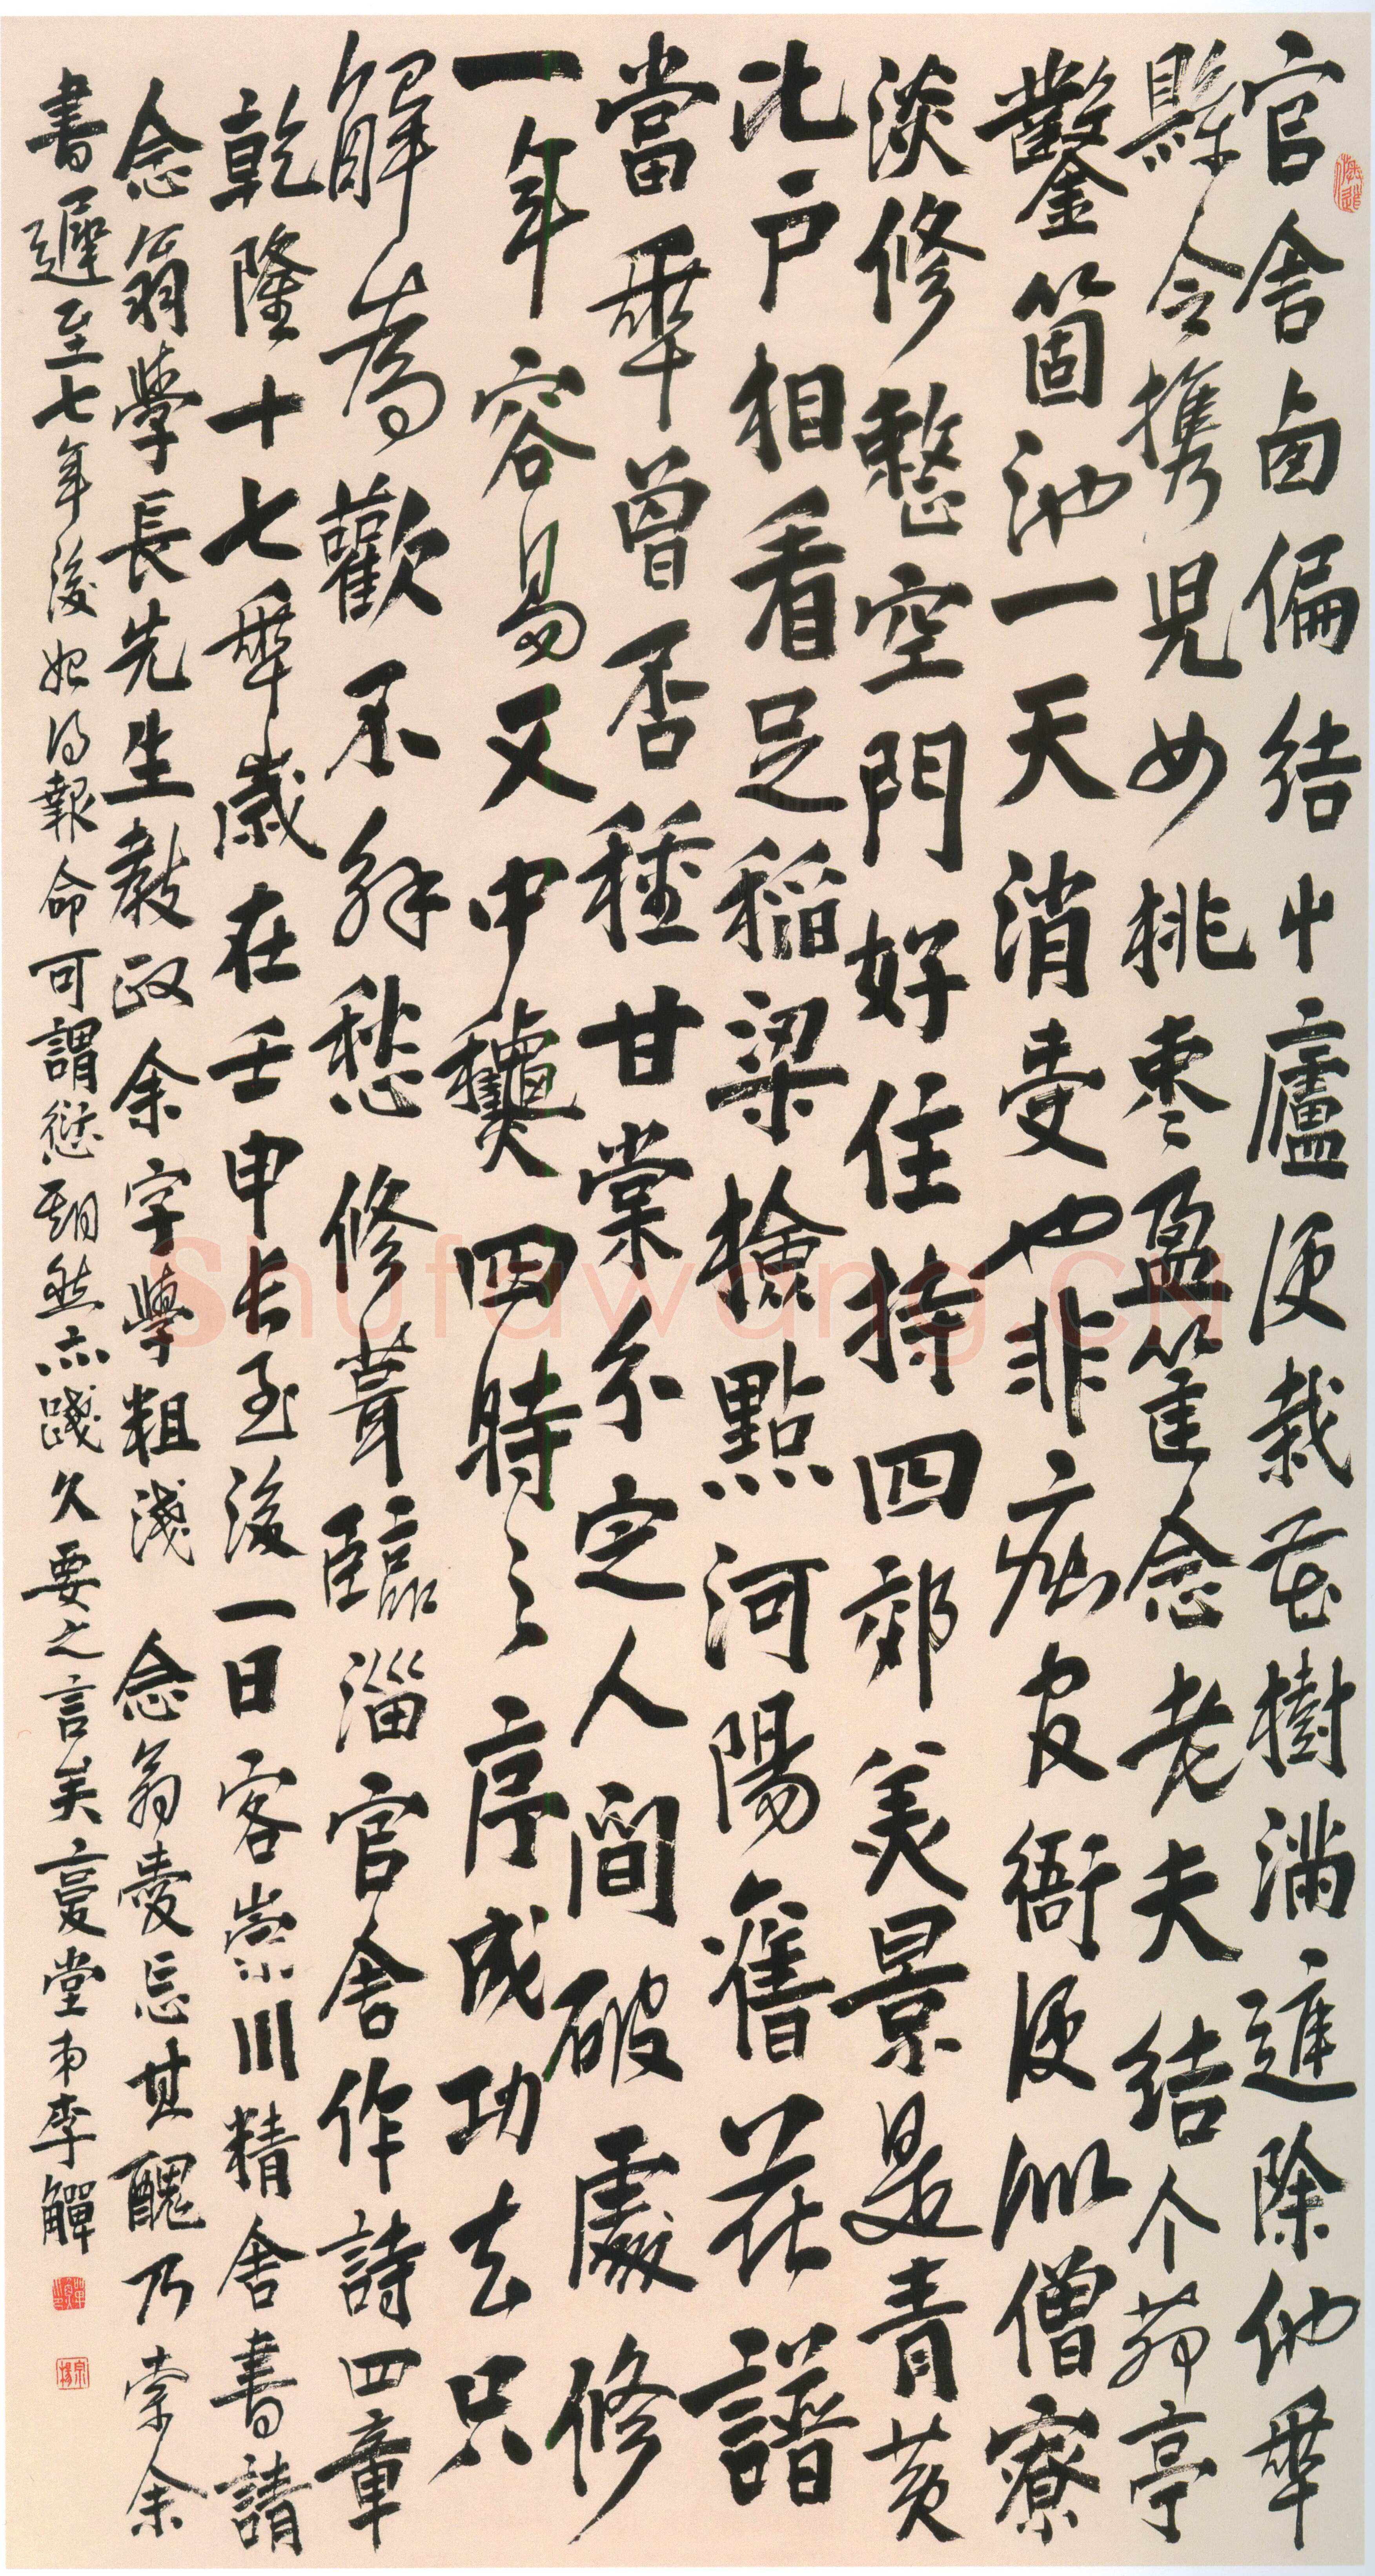 官舍鹵偏結中廬便栽花樹滿進除他年
縣令携兒女桃棗盈筐念老夫結个茆亭
鑿箇池一天消受也非疵官衙便似僧寮
淡修整空門好住持四郊美景是青黃
比戶相看足稻粱檢點河陽舊花譜
當年曾否種甘棠分定人間破處修
一年容易又中龝四時之序成功去只
解為歡不解愁修葺臨淄官舍作詩四章
乾隆十七年歲在壬申長至後一日客崇川精舍書請
念翁學長先生教政余字學粗淺念翁愛忘其醜乃索余
書遲至七年後始得報命可謂愆期然亦踐久要之言矣憂堂弟李觶
Shufawang.CN